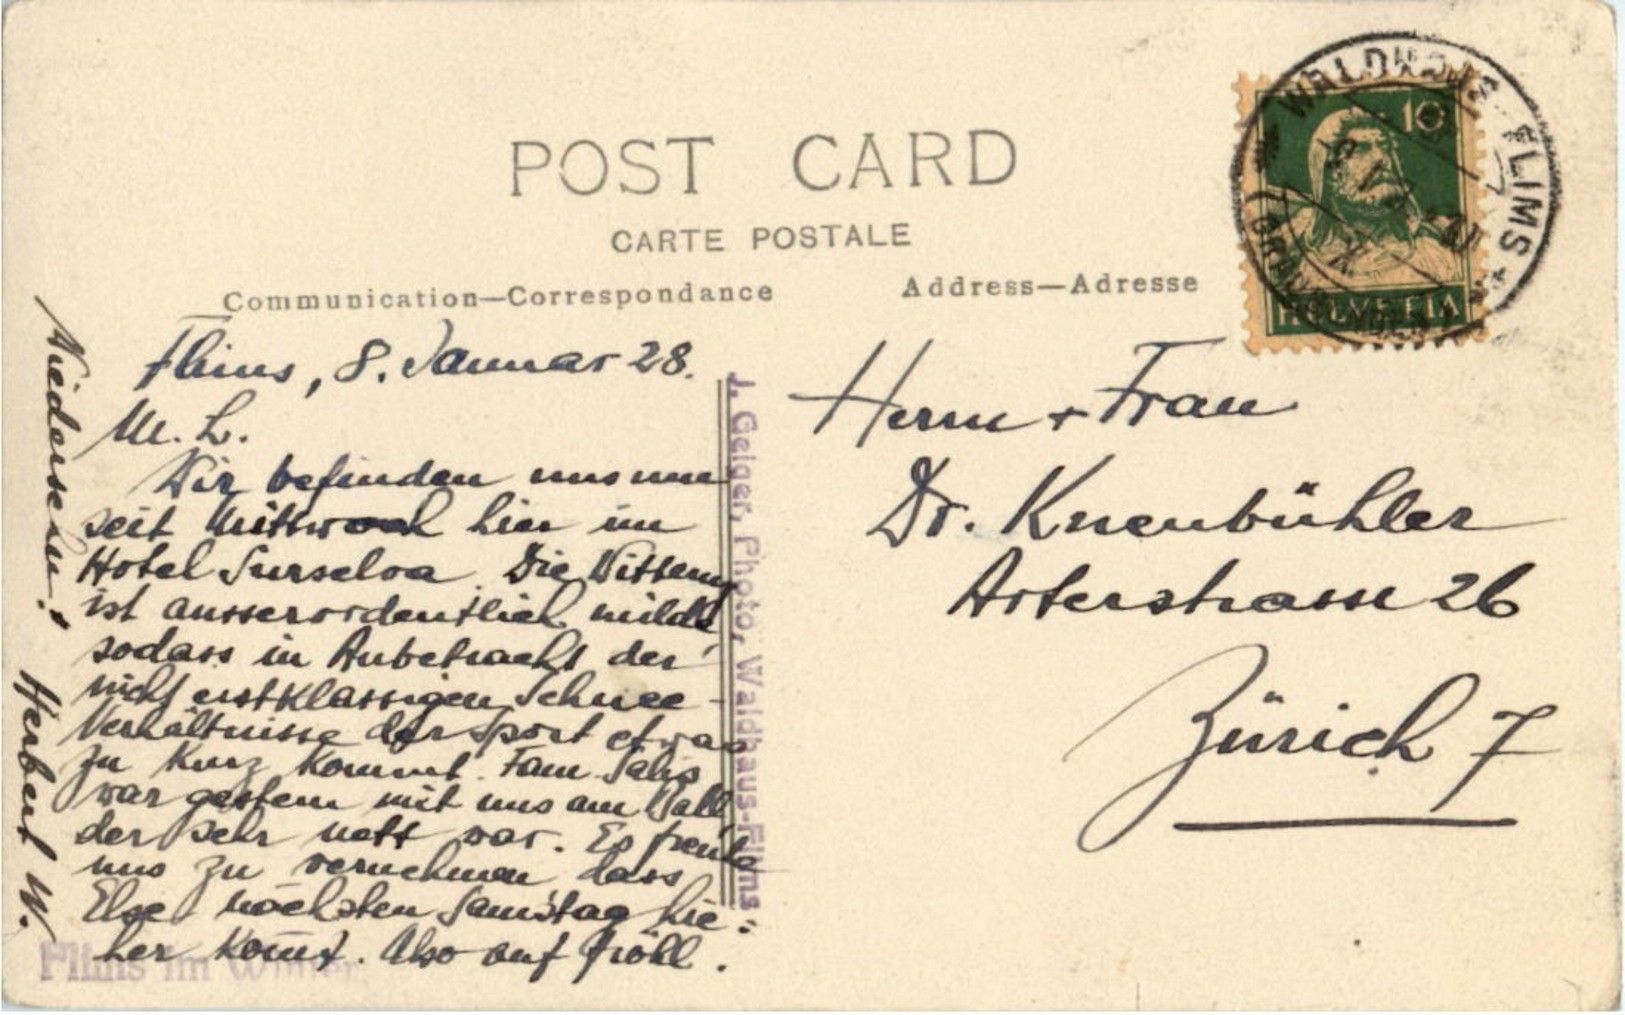 POST CARD
CARTE POSTALE
Communication—Correspondance
Address—Adresse
WALDHAUS - FLIMS
(GRAUBÜNDEN)
10
HELVETIA
Flims, 8. Januar 28.
M. L.
Wir befinden uns nun
seit Mittwoch hier im
Hotel Surselva. Die Witterung
ist ausserordentlich milde
sodass in Anbetracht der
nicht erstklassigen Schnee-
Verhältnisse der Sport etwas
zu kurz kommt. Fam. Salis
war gestern mit uns am Ball,
der sehr nett war. Es freute
uns zu vernehmen dass
Else nächsten Samstag hie-
her kommt. Also auf fröhl.
Wiedersehn!
Herbert W.
J. Geiger, Photo, Waldhaus-Flims
Flims im Winter
Herrn + Frau
Dr. Knenbühler
Asterstrasse 26
Zürich 7